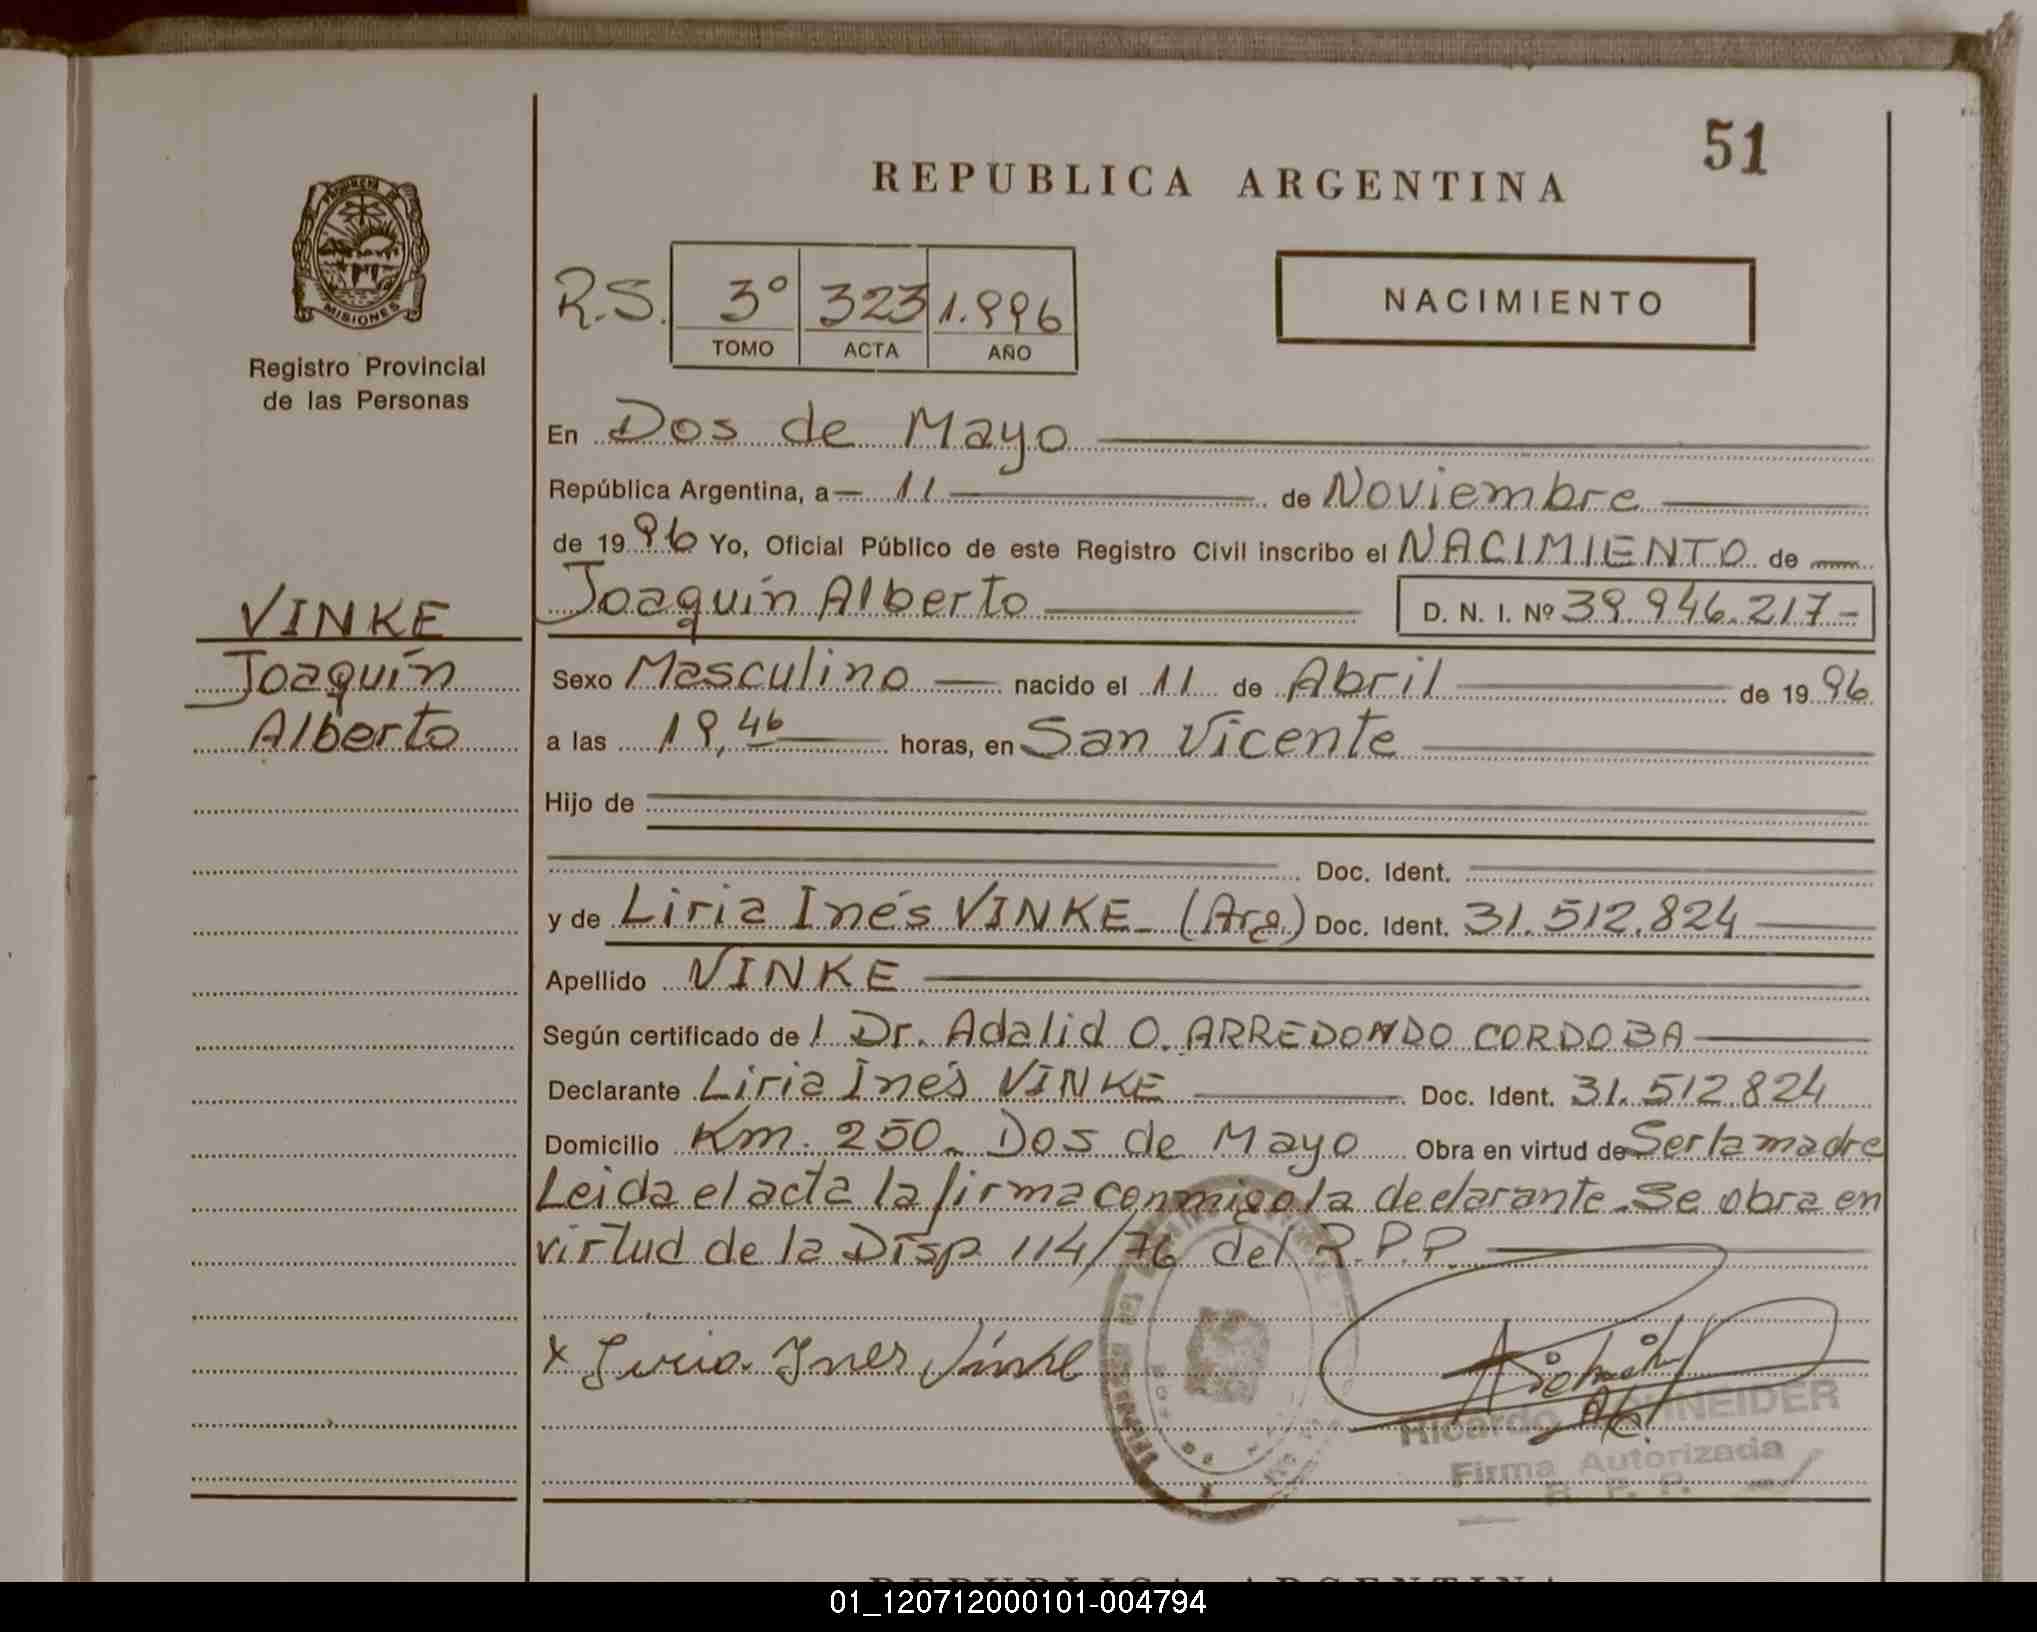 51
REPUBLICA ARGENTINA
PROVINCIA DE
MISIONES
Registro Provincial
de las Personas
R.S. 3º 323 1.996
TOMO ACTA AÑO
NACIMIENTO
En Dos de Mayo
República Argentina, a 11 de Noviembre
de 1996 Yo, Oficial Público de este Registro Civil inscribo el NACIMIENTO de
VINKE
Joaquín
Alberto
Joaquín Alberto D. N. I. Nº 39.946.217-
Sexo Masculino nacido el 11 de Abril de 1996
a las 19,46 horas, en San Vicente
Hijo de
Doc. Ident.
y de Liria Inés VINKE (Arg.) Doc. Ident. 31.512.824
Apellido VINKE
Según certificado de 1 Dr. Adalid O. ARREDONDO CORDOBA
Declarante Liria Inés VINKE Doc. Ident. 31.512.824
Domicilio Km. 250. Dos de Mayo Obra en virtud de Ser la madre
Leida el acta la firma conmigo la declarante. Se obra en
virtud de la Disp. 114/76 del R.P.P.
x Liria Ines Vinke
Ricardo SCHNEIDER
Firma Autorizada
R. P. P.
REPUBLICA ARGENTINA
01_120712000101-004794